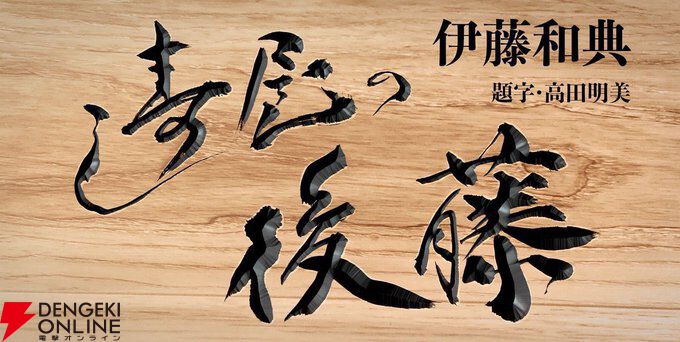 伊藤和典
題字・高田明美
の
後藤
DENGEKI
ONLINE
電撃オンライン